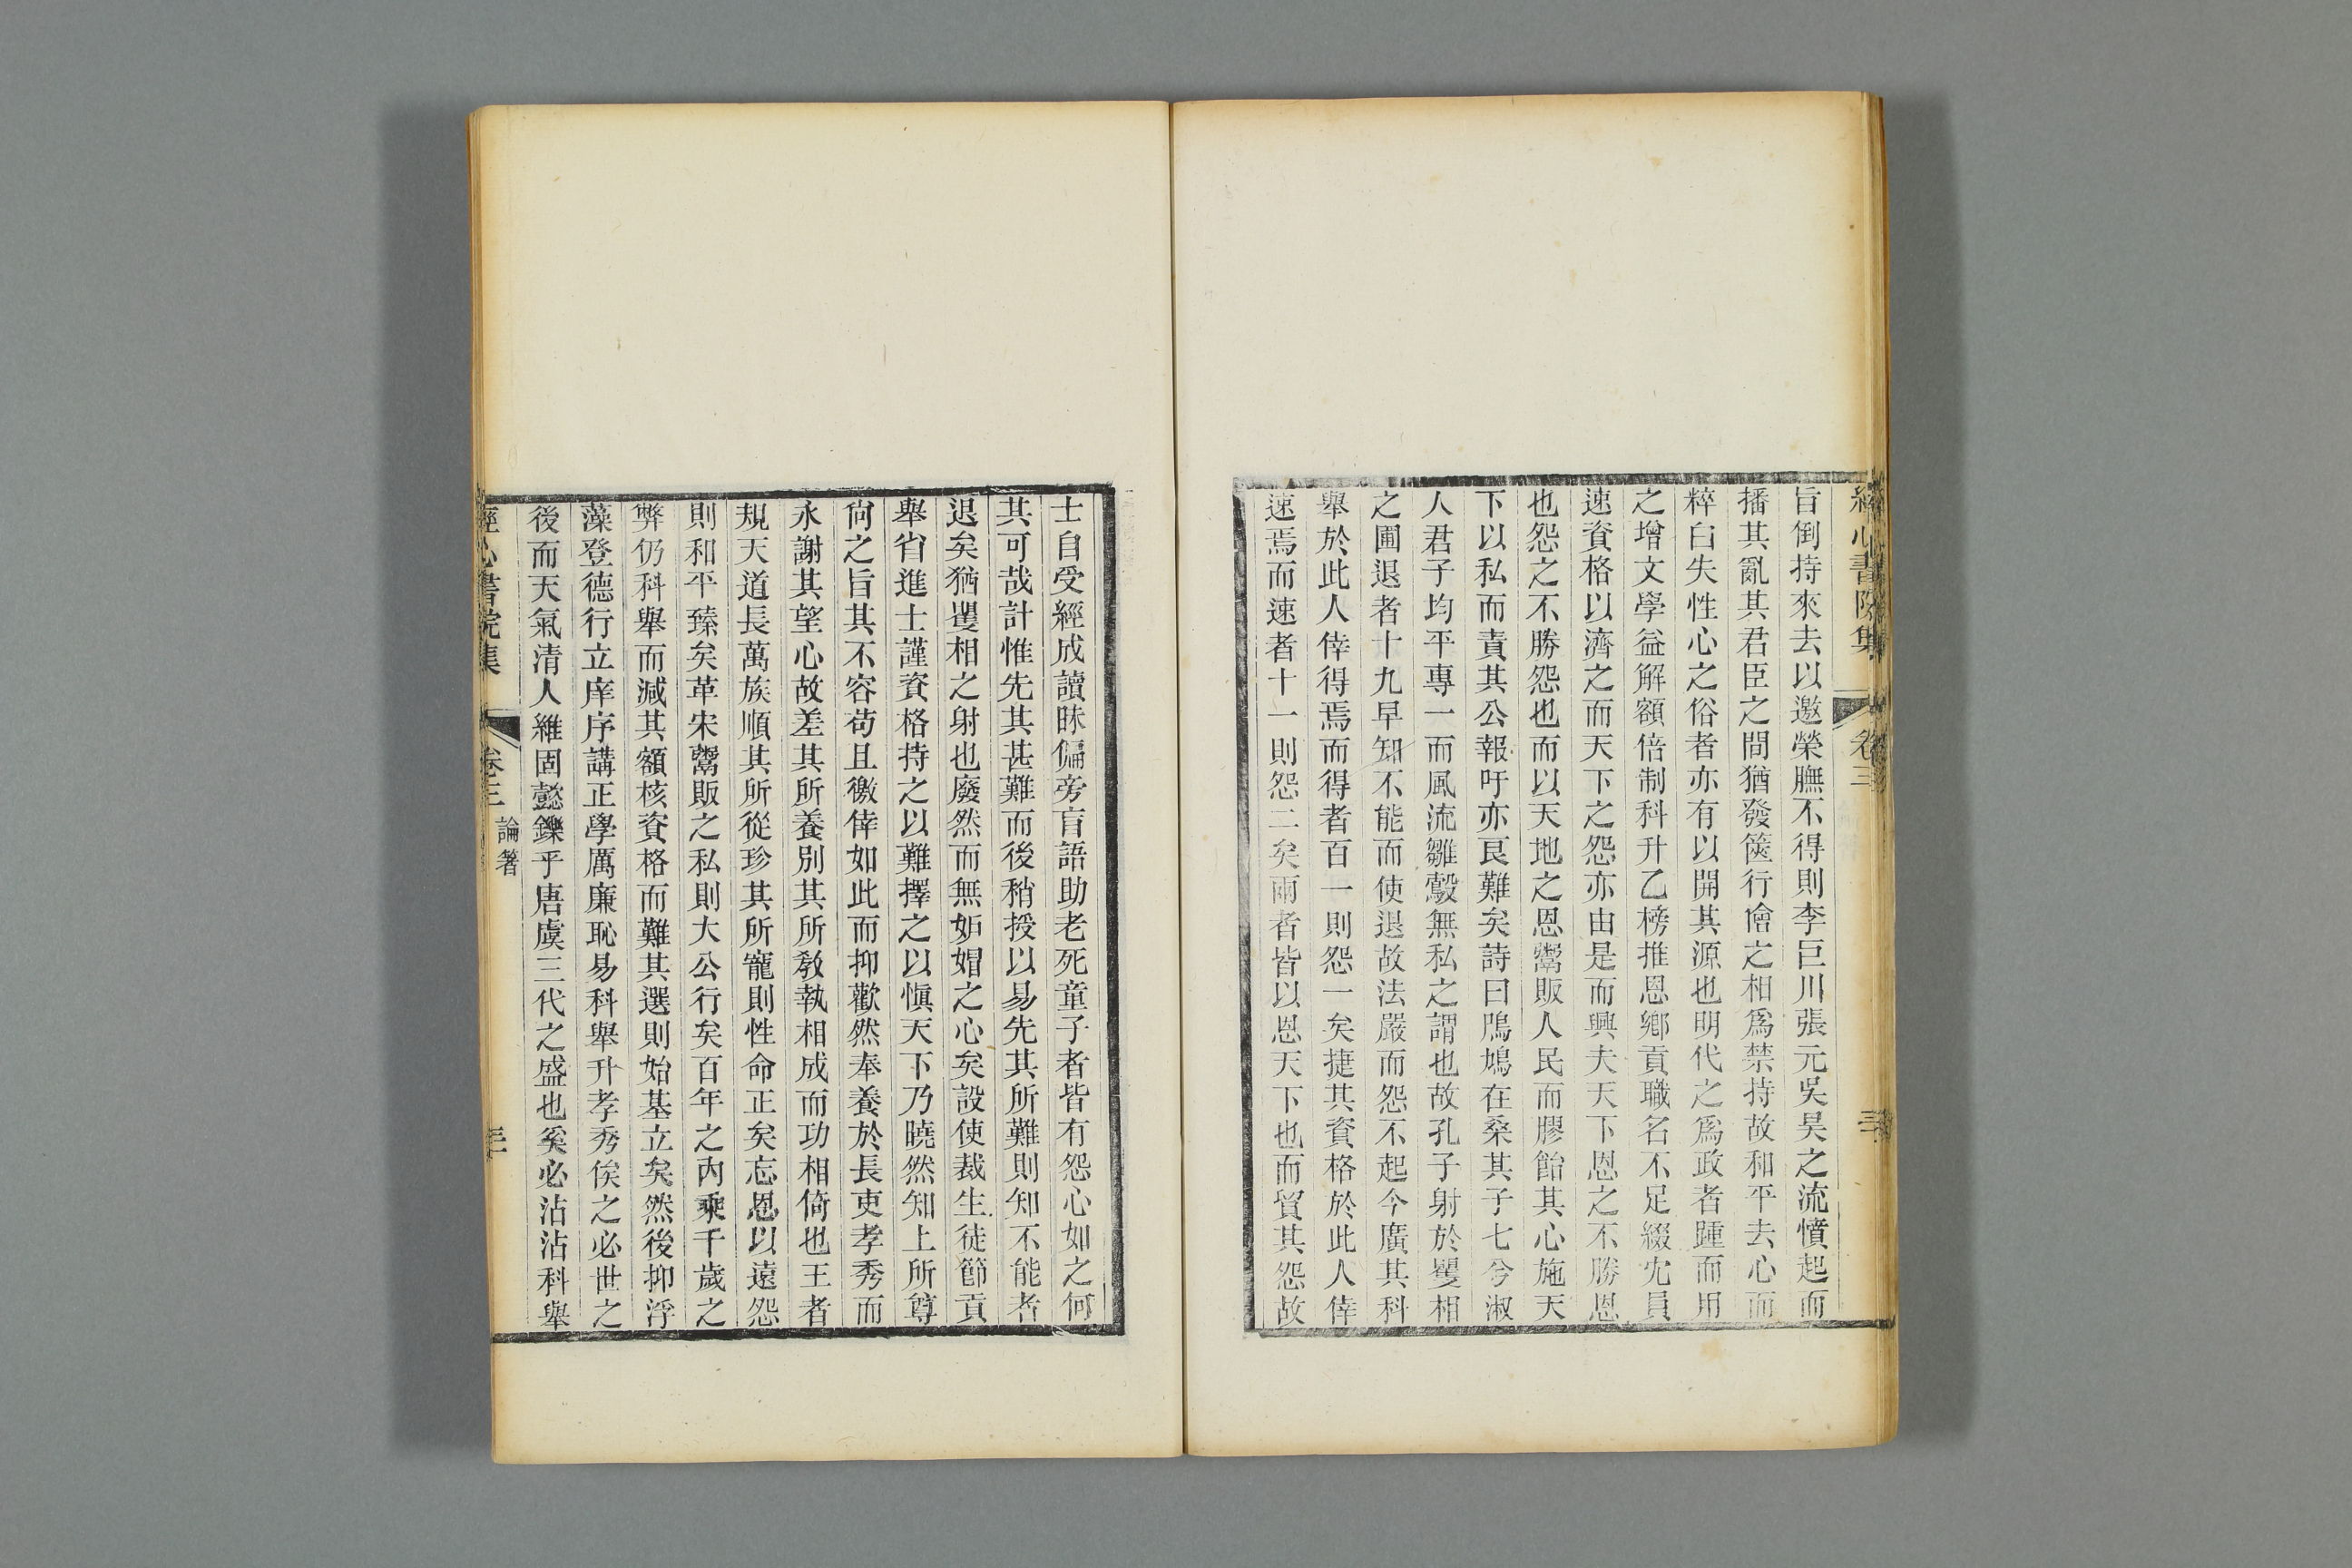 經心書院集 卷三 三
旨倒持來去以邀榮膴不得則李巨川張元吳昊之流憤起而
播其亂其君臣之間猶發篋行儈之相爲禁持故和平去心而
粹白失性心之俗者亦有以開其源也明代之爲政者踵而用
之增文學益解額倍制科升乙榜推恩鄉貢職名不足綴宂員
速資格以濟之而天下之怨亦由是而興夫天下恩之不勝恩
也怨之不勝怨也而以天地之恩鬻販人民而膠飴其心施天
下以私而責其公報吁亦艮難矣詩曰鳲鳩在桑其子七兮淑
人君子均平專一而風流雛鷇無私之謂也故孔子射於矍相
之圃退者十九早知不能而使退故法嚴而怨不起今廣其科
舉於此人倖得焉而得者百一則怨一矣捷其資格於此人倖
速焉而速者十一則怨二矣兩者皆以恩天下也而貿其怨故
士自受經成讀昧偏旁盲語助老死童子者皆有怨心如之何
其可哉計惟先其甚難而後稍授以易先其所難則知不能者
退矣猶矍相之射也廢然而無妒媢之心矣設使裁生徒節貢
舉省進士謹資格持之以難擇之以愼天下乃曉然知上所尊
尙之旨其不容苟且徼倖如此而抑歡然奉養於長吏孝秀而
永謝其望心故差其所養別其所敎執相成而功相倚也王者
規天道長萬族順其所從珍其所寵則性命正矣忘恩以遠怨
則和平臻矣革宋鬻販之私則大公行矣百年之內乘千歲之
弊仍科舉而減其額核資格而難其選則始基立矣然後抑浮
藻登德行立庠序講正學厲廉恥易科舉升孝秀俟之必世之
後而天氣清人維固懿鑠乎唐虞三代之盛也奚必沾沾科舉
經心書院集 卷三 論著 三